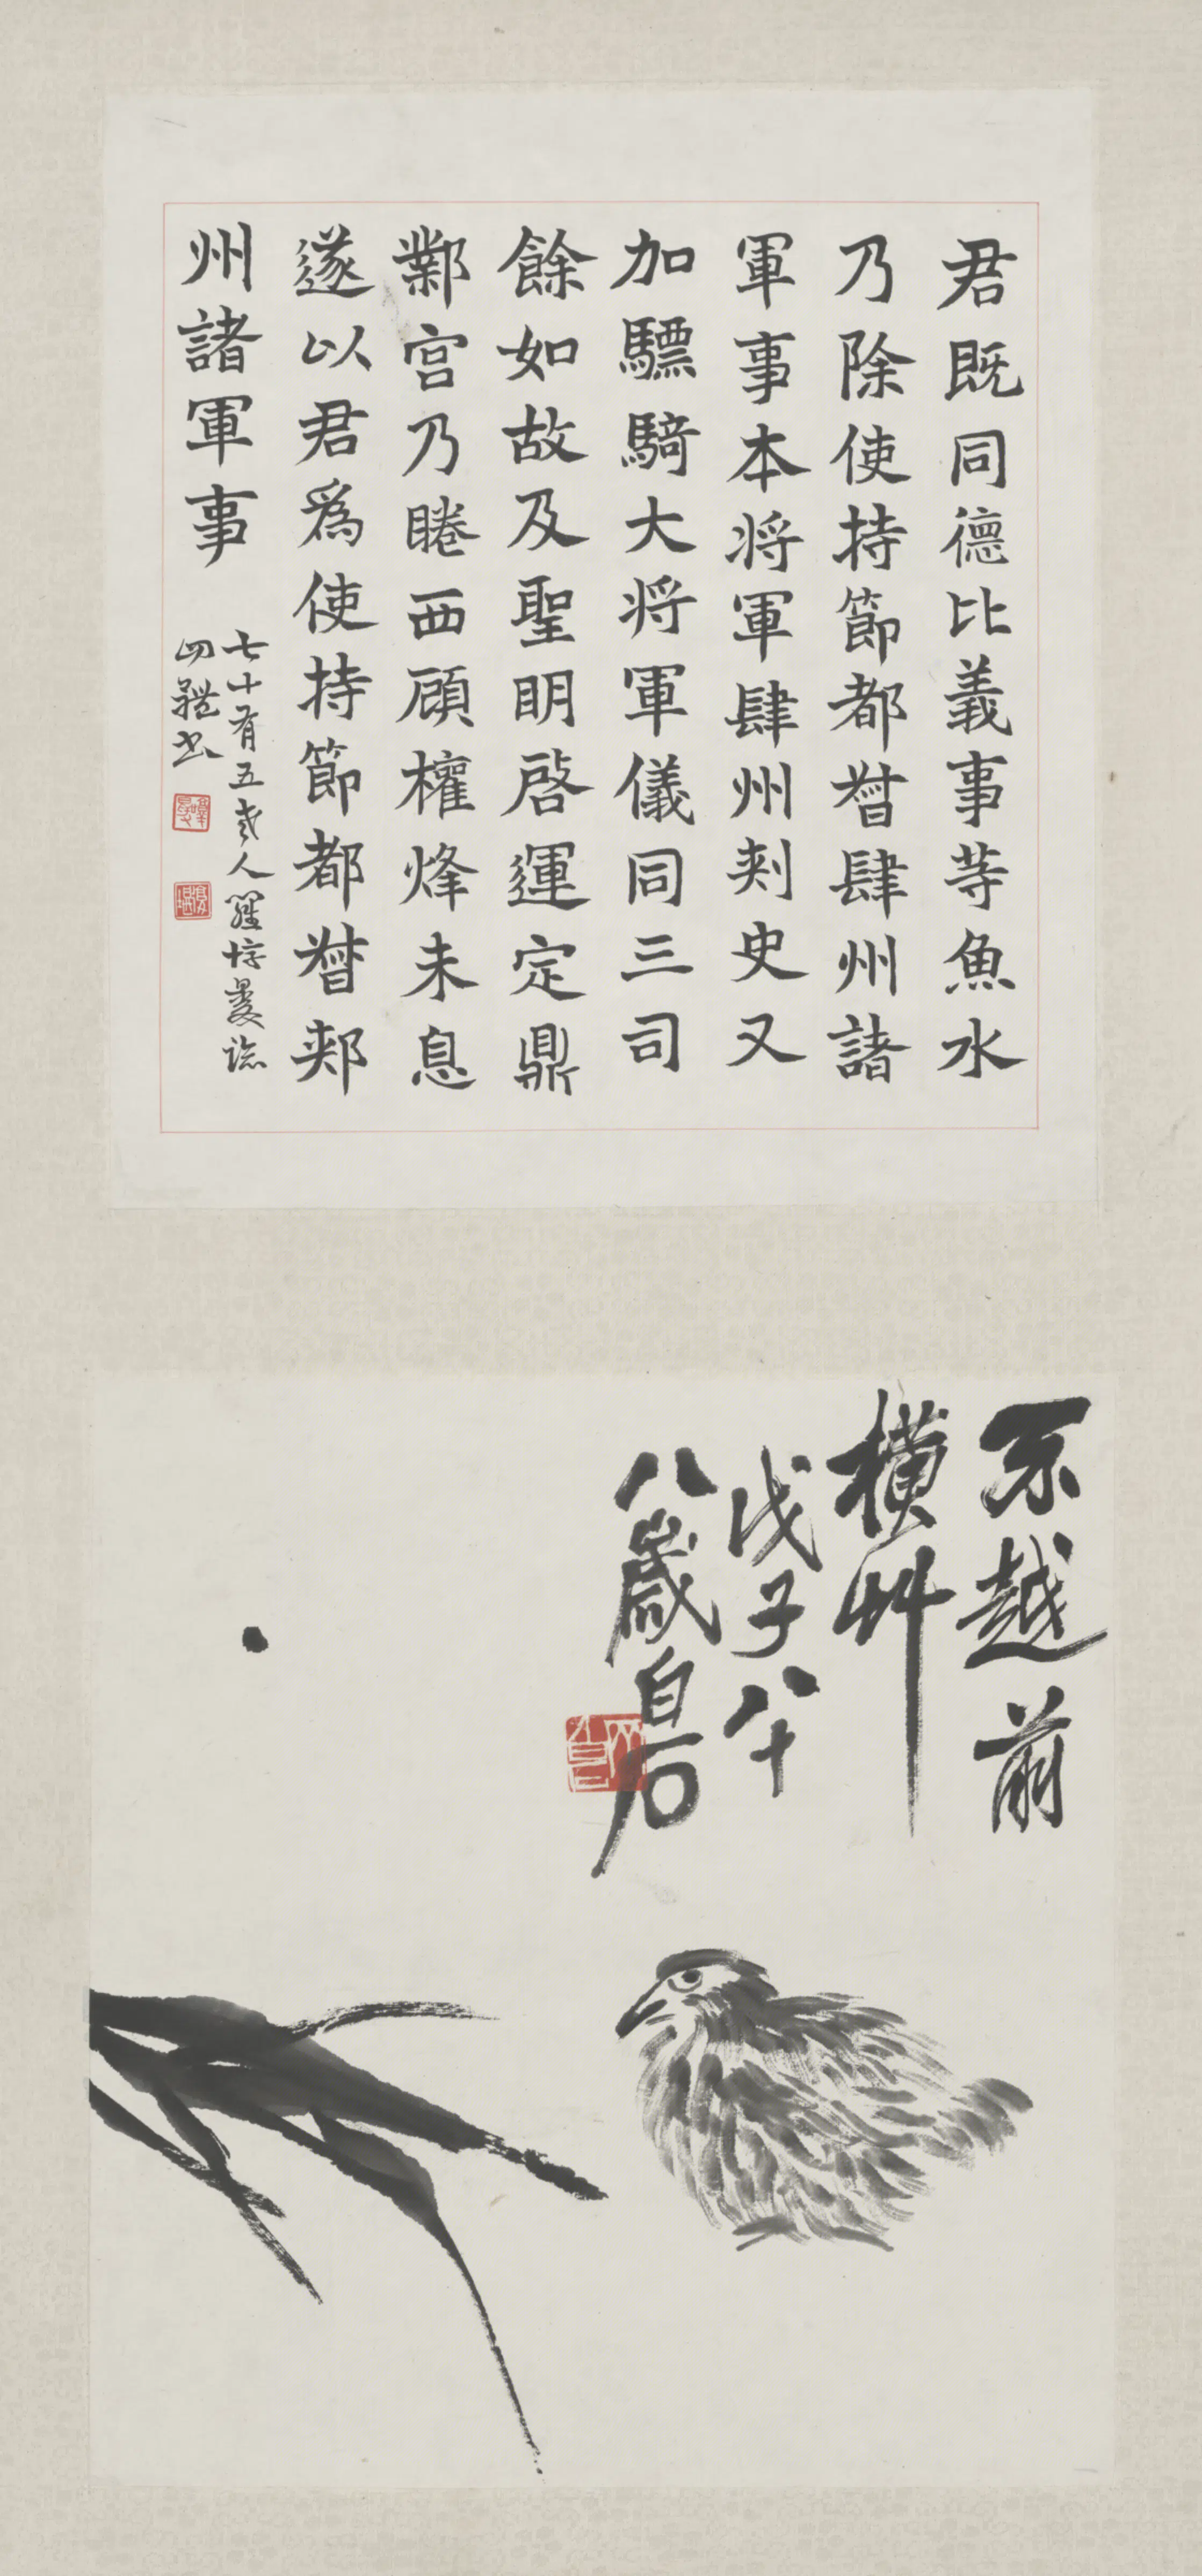 君既同德比義事等魚水
乃除使持節都督肆州諸
軍事本将軍肆州刾史又
加驃騎大将軍儀同三司
餘如故及聖明啓運定鼎
鄴宫乃睠西顧權烽未息
遂以君為使持節都督郟
州諸軍事
七十有五叟人羅惇㬊臨
四體書
不越前
橫艸
戊子八十
八歲白石